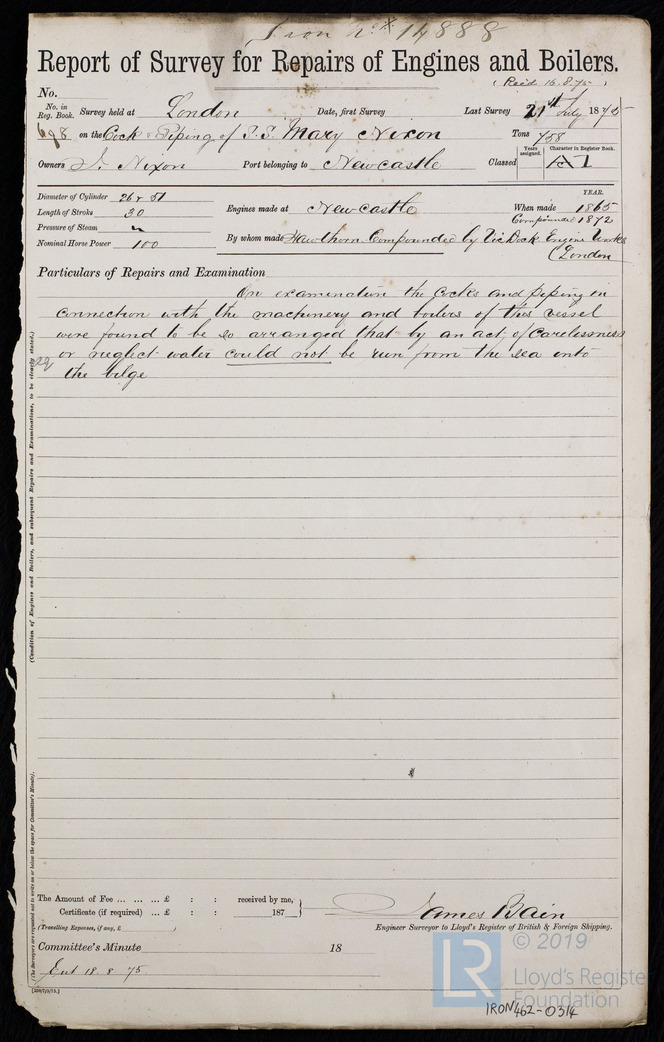 Iron No. 14888
Report of Survey for Repairs of Engines and Boilers.
(Recd 16.8.75)
No.
No. in Reg. Book. Survey held at London Date, first Survey Last Survey 21st July 1875
698 on the Cock & Piping of S.S. Mary Nixon Tons 758
Owners J. Nixon Port belonging to Newcastle Classed Years assigned. Character in Register Book. A1
Diameter of Cylinder 26 & 51
Length of Stroke 30
Pressure of Steam
Nominal Horse Power 100
Engines made at Newcastle
YEAR.
When made 1865
Compounded 1872
By whom made Hawthorn Compounded by Vic Dock Engine Works
(London
Particulars of Repairs and Examination
On examination the Cocks and piping in
connection with the machinery and boilers of this vessel
were found to be so arranged that by an act of carelessness
or neglect water could not be run from the sea into
the bilge
(Condition of Engines and Boilers, and subsequent Repairs and Examinations, to be clearly stated.)
(The Surveyors are requested not to write on or below the space for Committee's Minute).
The Amount of Fee ... ... ... £ : : received by me,
Certificate (if required) ... £ : : 187
(Travelling Expenses, if any, £ )
James Bain
Engineer Surveyor to Lloyd's Register of British & Foreign Shipping.
Committee's Minute 18
Ent 18.8.75.
LR
© 2019
Lloyd's Register
Foundation
IRON462-0314